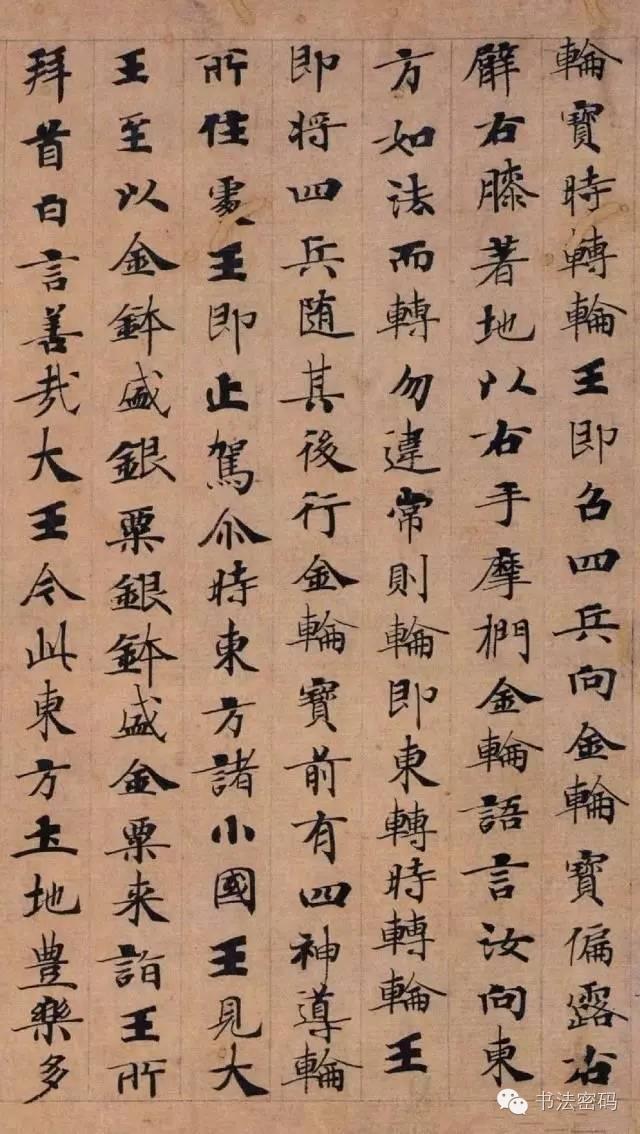 輪寶時轉輪王即召四兵向金輪寶偏露右
臂右膝著地以右手摩捫金輪語言汝向東
方如法而轉勿違常則輪即東轉時轉輪王
即將四兵随其後行金輪寶前有四神導輪
所住處王即止駕尒時東方諸小國王見大
王至以金鉢盛銀粟銀鉢盛金粟来詣王所
拜首白言善哉大王今此東方土地豊樂多
书法密码